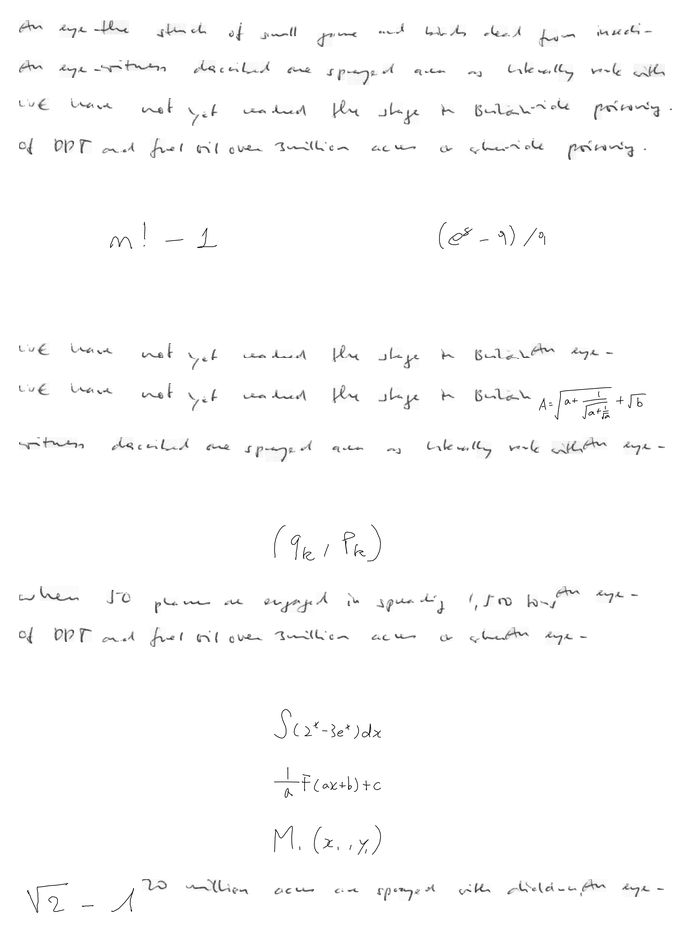 An eye the stench of small game and birds dead from insecti-
An eye-witness described one sprayed area as literally reek with
we have not yet reached the stage in Britain -ide poisoning.
of DDT and fuel oil over 3 million acres or -ide poisoning.
n! - 1 (e^8 - 9) / 9
we have not yet reached the stage in Britain An eye-
we have not yet reached the stage in Britain A = √(a + 1/√(a + 1/√a)) + √b
witness described one sprayed area as literally reek with An eye-
(q_k, p_k)
when 50 planes are engaged in spreading 1,500 tons An eye-
of DDT and fuel oil over 3 million acres or An eye-
∫(2^x - 3e^x)dx
1/a F(ax+b)+c
M₁ (x₁, y₁)
√2 - 1 20 million acres are sprayed with dieldrin, An eye-